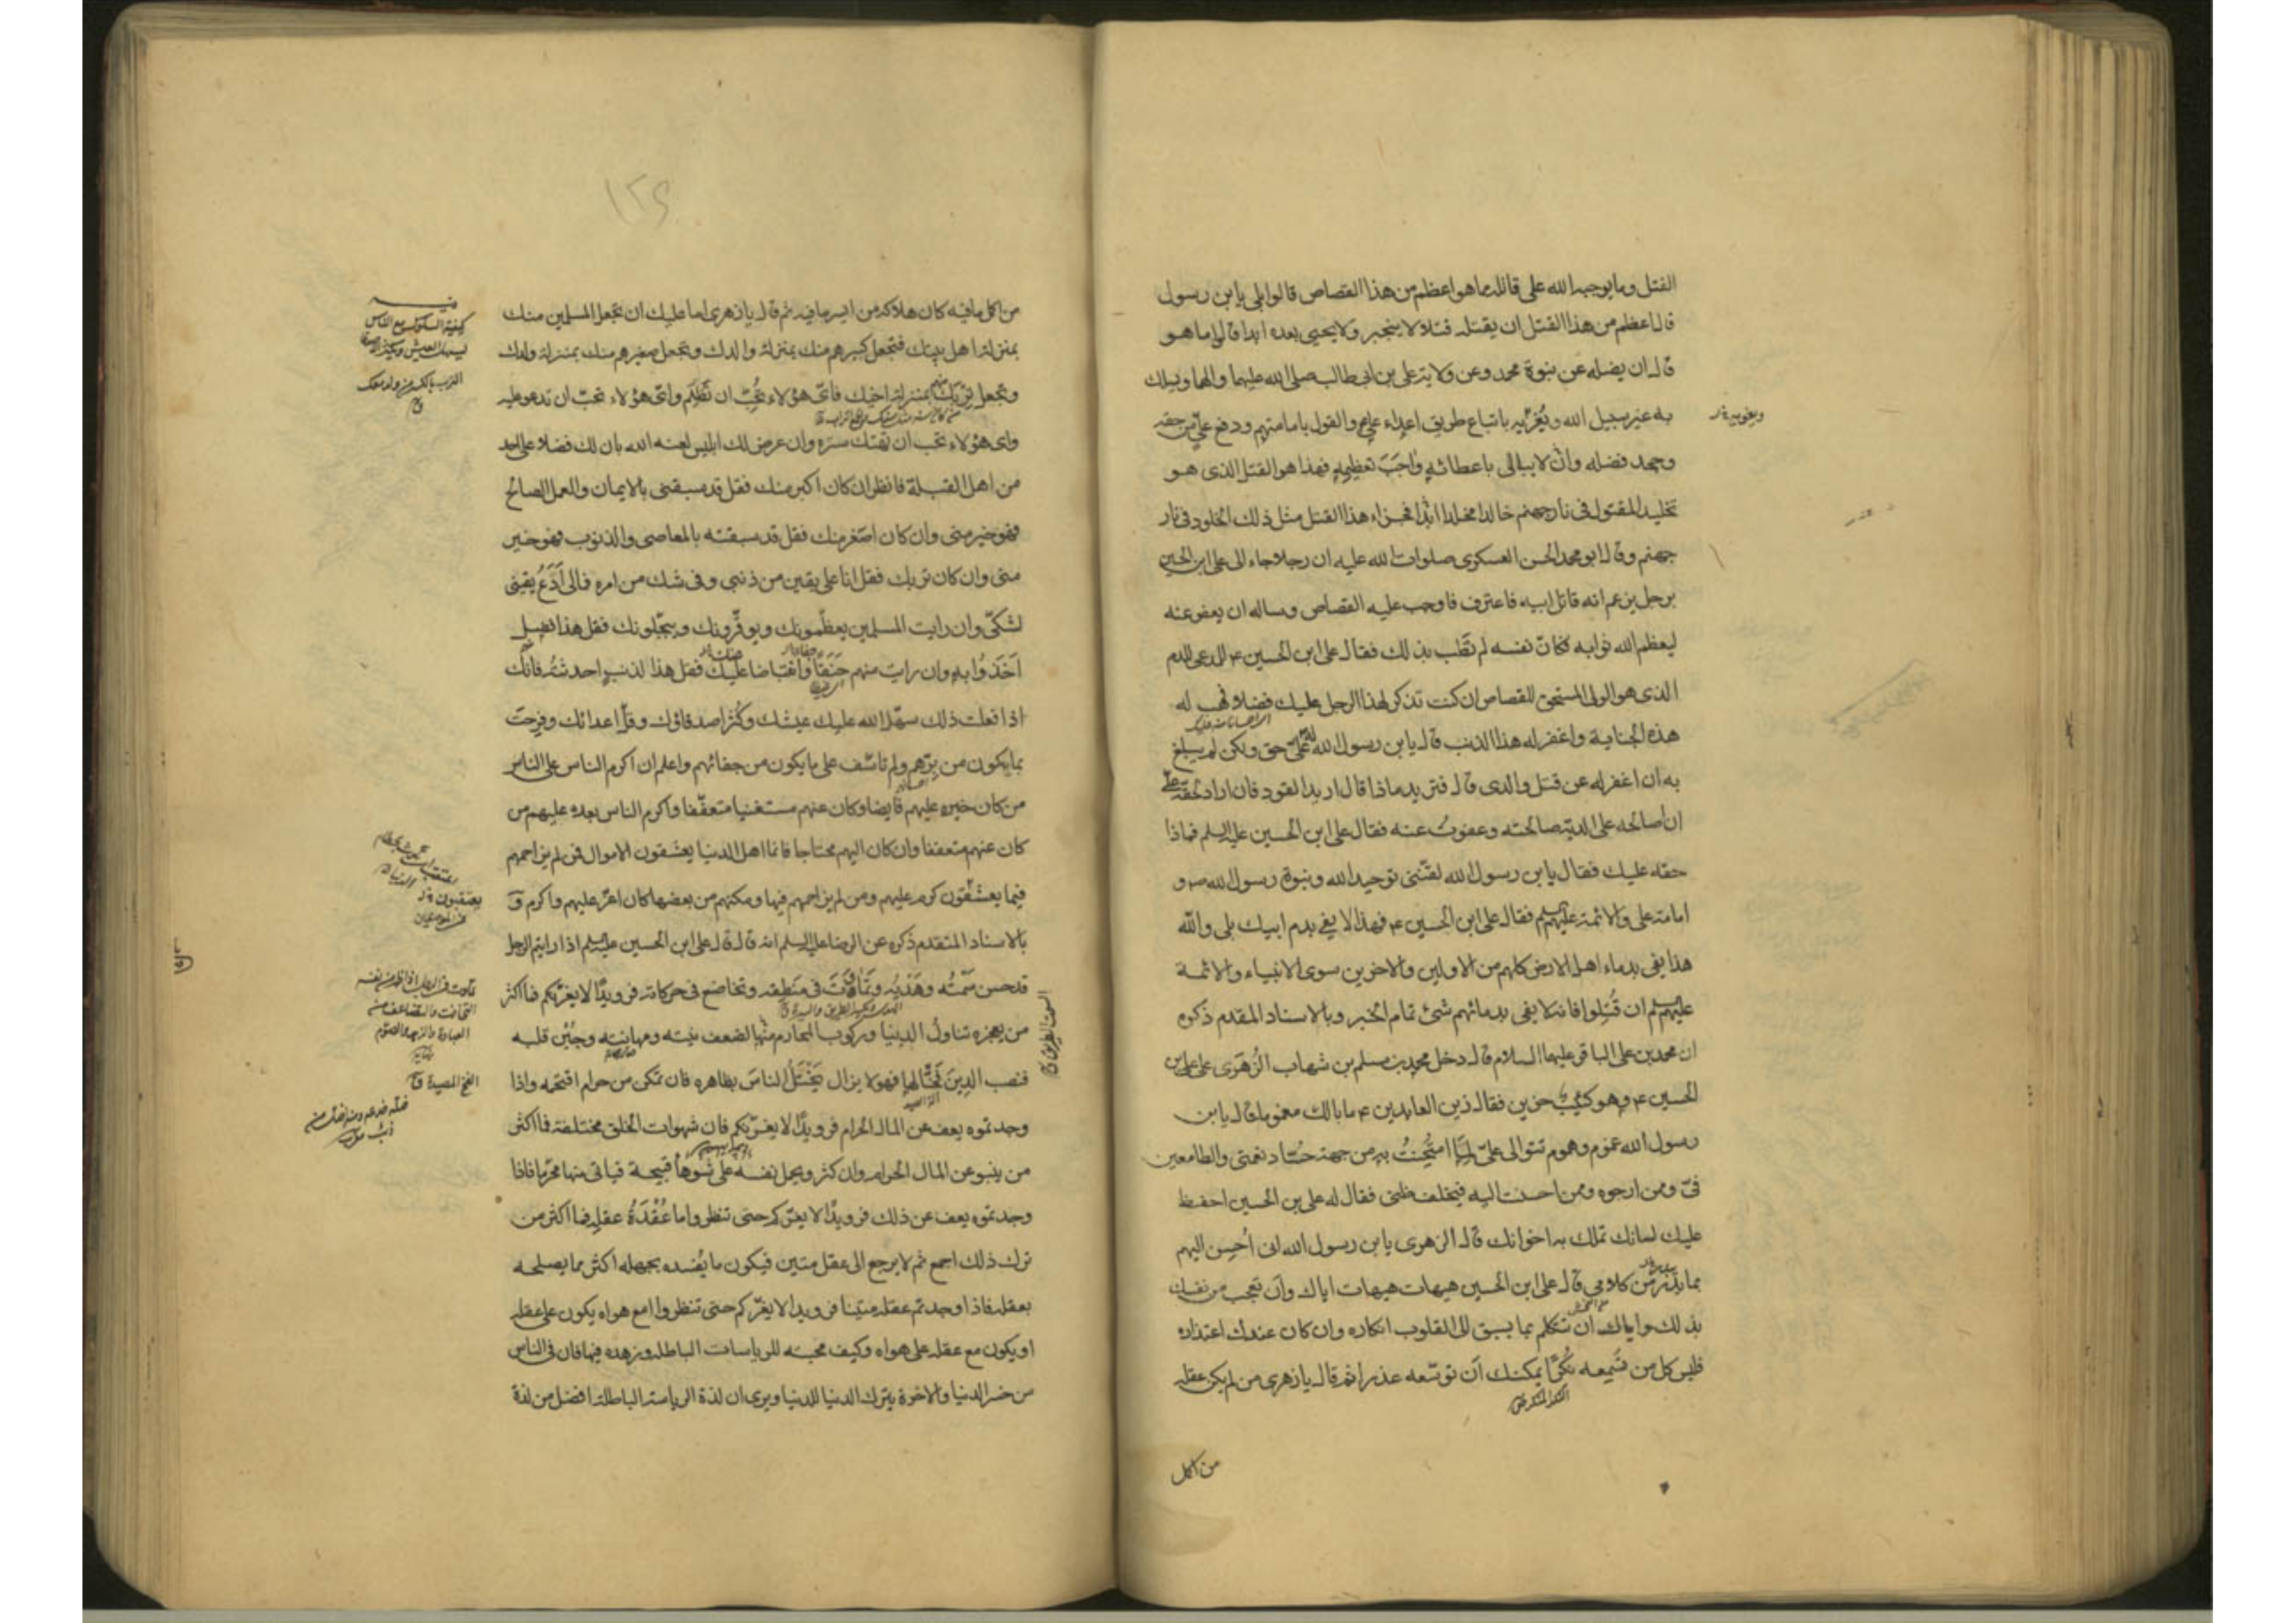 القتل وما يوجب الله على قاتله مما هو اعظم من هذا القصاص قالوا بلى يابن رسول
قال اعظم من هذا القتل ان يقتله قتلا لا ينجبر ولا يحيى بعده ابدا قالوا ما هو
قال ان يضله عن نبوة محمد وعن ولاية على بن ابى طالب صلى الله عليهما والهما ويسلك
به غير سبيل الله ويُغرّيه باتباع طريق اعداء على ع والقول بامامتهم ودفع علىّ عن حقه
وجحد فضله وان لا يبالى باعطائه واجبَ تعظيمه فهذا هو القتل الذى هو
تخليد المقتول فى نار جهنم خالدا مخلدا ابدًا فجزاء هذا القتل مثل ذلك الخلود فى نار
جهنم وقال ابو محمد الحسن العسكرى صلوات الله عليه ان رجلا جاء الى على ابن الحسين
برجل يزعم انه قاتل ابيه فاعترف فاوجب عليه القصاص وساله ان يعفو عنه
ليعظم الله ثوابه فكانّ نفسه لم تطب بذلك فقال على ابن الحسين ع للمدعى للدم
الذى هو الولى المستحق للقصاص ان كنت تذكر لهذا الرجل عليك فضلا فهب له
هذه الجناية واغفر له هذا الذنب قال يابن رسول الله له علىّ حق ولكن لم يبلغ
به ان اغفر له عن قتل والدى قال فتريد ماذا قال اريد القود فان اراد لحقه علىّ
ان اصالحه على الدية صالحته وعفوتُ عنه فقال على ابن الحسين عليه السلم فماذا
حقه عليك فقال يابن رسول الله لقّننى توحيد الله ونبوة رسول الله ص و
امامة على والائمة عليهم السلم فقال على ابن الحسين ع فهذا لا يفى بدم ابيك بلى والله
هذا يفى بدماء اهل الارض كلهم من الاولين والاخرين سوى الانبياء والائمة
عليهم السلم ان قُتِلوا فانه لا يفى بدمائهم شئ تمام الخبر وبالاسناد المقدم ذكره
ان محمد بن على الباقر عليهما السلام قال دخل محمد بن مسلم بن شهاب الزُهَرى على على بن
الحسين ع وهو كئيب حزين فقال زين العابدين ع ما بالك مغموما قال يابن
رسول الله غموم وهموم تتوالى علىّ لما امتُحِنتُ به من جهة حُسّاد نعمتى والطامعين
فىّ وممن ارجوه وممن احسنت اليه فيخلف ظنى فقال له على بن الحسين احفظ
عليك لسانك تملك به اخوانك قال الزهرى يابن رسول الله انى اُحسِن اليهم
بما يَبْدُر من كلامى قال على ابن الحسين هيهات هيهات اياك وان تعجب من نفسك
بذلك واياك ان تتكلم بما يسبق الى القلوب انكاره وان كان عندك اعتذاره
فليس كل من تُسمعه نُكرًا يمكنك ان توسّعه عذرا ثم قال يا زهرى من لم يكن عقله
من اكمل
١٢٩
من اكمل ما فيه كان هلاكه من ايسر ما فيه ثم قال يا زهرى اما عليك ان تجعل المسلمين منك
بمنزلة اهل بيتك فتجعل كبيرهم منك بمنزلة والدك وتجعل صغيرهم منك بمنزلة ولدك
وتجعل تِربَك منهم بمنزلة اخيك فاىّ هؤلاء تحُبّ ان تَظلِم واىّ هؤلاء تحبّ ان تدعو عليه
واى هؤلاء تحب ان تهتك ستره وان عرض لك ابليس لعنه الله بان لك فضلا على احد
من اهل القبلة فانظر ان كان اكبر منك فقل قد سبقنى بالايمان والعمل الصالح
فهو خير منى وان كان اصغر منك فقل قد سبقته بالمعاصى والذنوب فهو خير
منى وان كان تربك فقل انا على يقين من ذنبى وفى شك من امره فمالى اَدَعُ يقينى
لشكّى وان رايت المسلمين يعظّمونك ويوقّرونك ويبجّلونك فقل هذا فضل
اَخَذوُا به وان رايت منهم جَفَاءً وانقباضا عليك فقل هذا لذنب احدثته فانك
اذا فعلت ذلك سهّل الله عليك عيشك وكَثُر اصدقاؤك وقلّ اعداؤك وفرحت
بما يكون من بِرّهم ولم تاسف على ما يكون من جفائهم واعلم ان اكرم الناس على الناس
من كان خيره عليهم فايضا وكان عنهم مستغنيا متعفّفا واكرم الناس بعده عليهم من
كان عنهم متعففا وان كان اليهم محتاجا فانما اهل الدنيا يعشقون الاموال فمن لم يزاحمهم
فيما يعشقون كرم عليهم ومن لم يزاحمهم فيها ومكنهم من بعضها كان اعز عليهم واكرم و
بالاسناد المتقدم ذكره عن الرضا عليه السلم انه قال قال على ابن الحسين عليه السلم اذا رايتم الرجل
قد حسن سَمْتُه وهَدْيُه وتَمَاوَتَ فى مَنطِقه وتخاضع فى حركاته فرويدًا لا يغرنّكم فما اكثر
من يعجزه تناولُ الدنيا وركوب المحارم منها لضعف نيته ومهانته وجُبْن قلبه
فنصب الدينَ فَخًّا لها فهو لا يزال يَخْتِلُ الناسَ بظاهره فان تمكن من حرام اقتحمه واذا
وجدتموه يعف عن المال الحرام فرويدًا لا يغرّنكم فان شهوات الخلق مختلفة فما اكثر
من ينبو عن المال الحرام وان كثر ويحمل نفسه على شَوهاَ قبيحة فياتى منها محرما فاذا
وجدتموه يعف عن ذلك فرويدًا لا يغرّكم حتى تنظروا ما عُقْدَةُ عقله فما اكثر من
ترك ذلك اجمع ثم لا يرجع الى عقل متين فيكون ما يُفسده بجهله اكثر مما يصلحه
بعقله فاذا وجدتم عقله متينا فرويدا لا يغرّكم حتى تنظروا امع هواه يكون على عقله
او يكون مع عقله على هواه وكيف محبته للرياسات الباطلة وزهده فيها فان فى الناس
من خسر الدنيا والاخرة بترك الدنيا للدنيا ويرى ان لذة الرياسة الباطلة افضل من لذة
كيفية السلوك مع الناس
الترب بالكسر من ولد معك
الفخ المصيدة ق